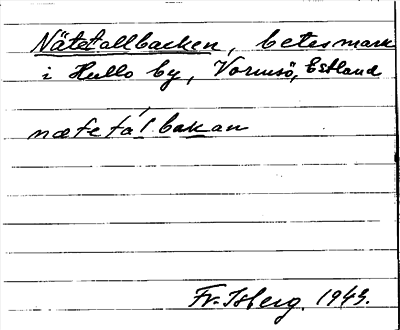 Nätetallbacken, betesmark
i Hullo by, Vormsö, Estland
nætetálbakan
Fr. Isberg. 1943.